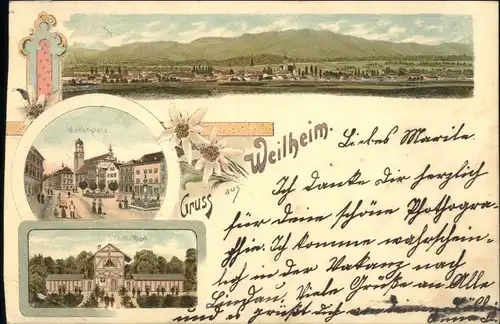 Marktplatz.
Bad.
Gruss aus Weilheim.
Liebes Marile.
Ich danke dir herzlich
für deine schöne Photogra-
phie. Ich komme wahrschein-
lich in der Vakanz nach
Lindau. Viele Grüße an Alle
und es grüßt dich
Anna